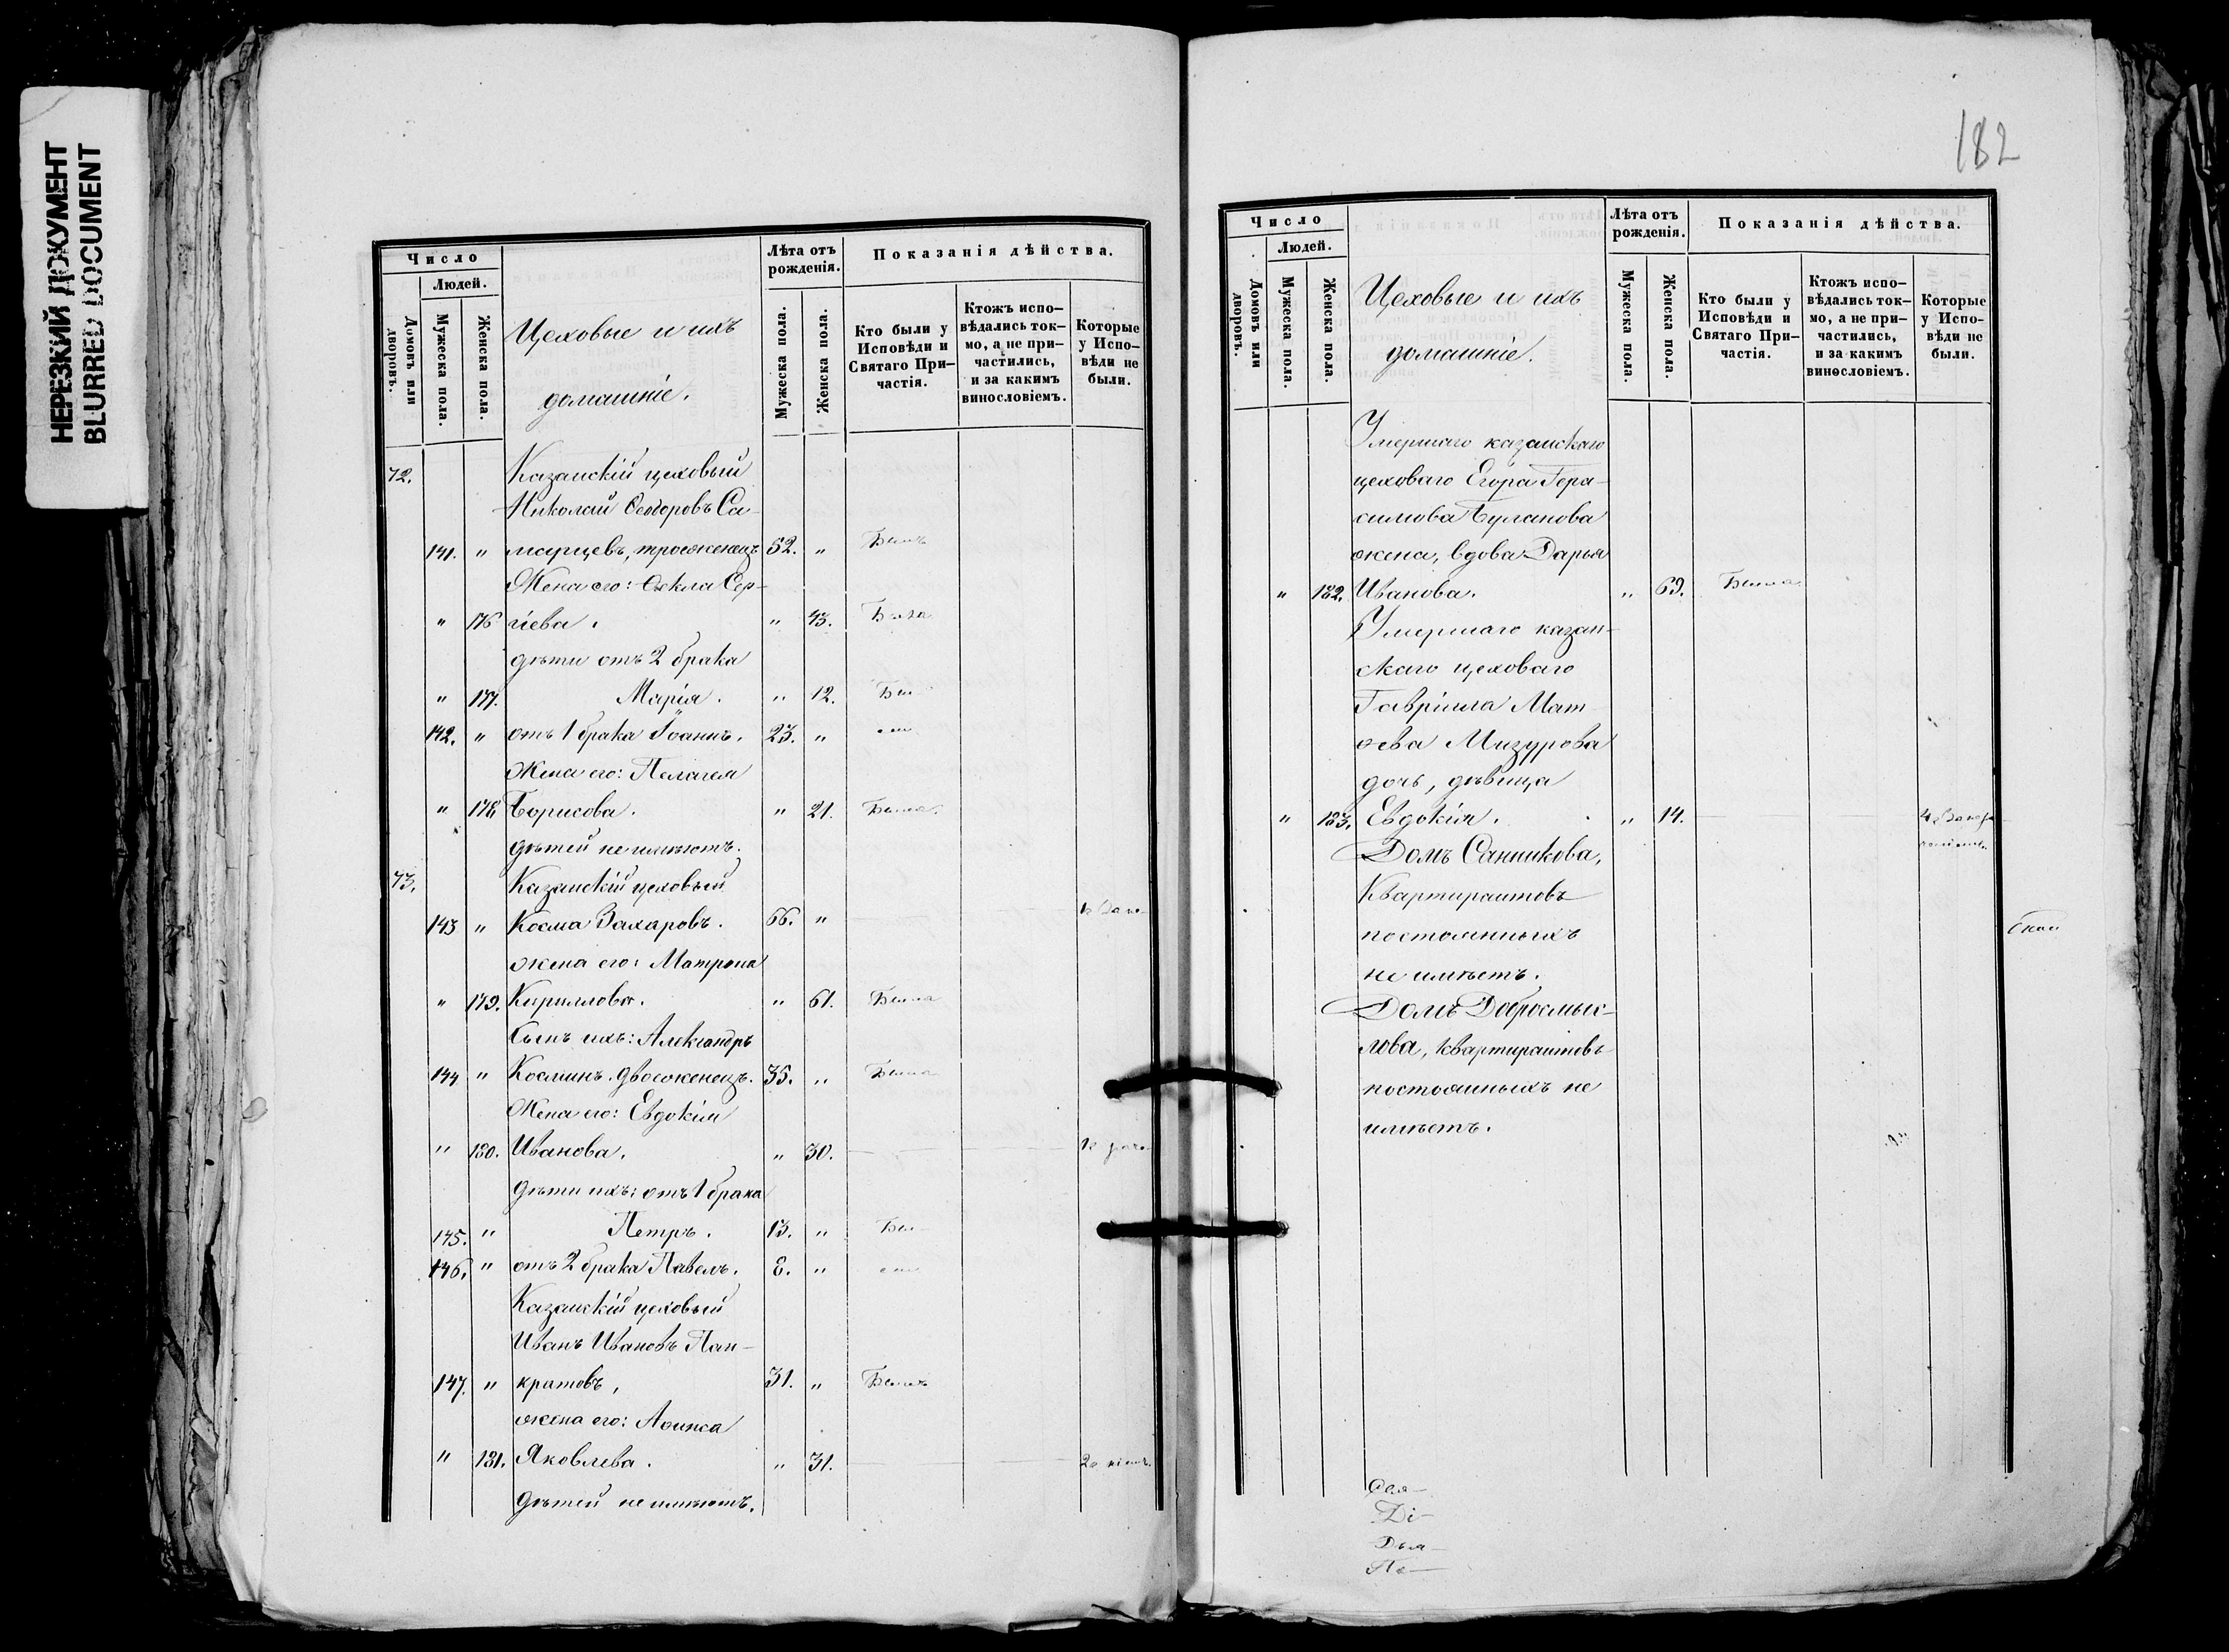 НЕРЕЗКИЙ ДОКУМЕНТ
BLURRED DOCUMENT
Число
Людей.
Домовъ или дворовъ.
Мужеска пола.
Женска пола.
Цеховые и ихъ
домашніе.
Лѣта отъ рожденія.
Мужеска пола.
Женска пола.
Показанія дѣйства.
Кто были у Исповѣди и Святаго При-частія.
Ктожъ испо-вѣдались ток-мо, а не при-частились, и за какимъ винословіемъ.
Которые у Испо-вѣди не были.
72. Казанскій цеховый
Николай Ѳеодоровъ Са-
141. " марцевъ, троеженецъ 52. " Былъ
Жена его: Ѳекла Сер-
" 176 гіева. " 43. Была
дѣти отъ 2 брака
" 177. Марія. " 12. Бы-
142. " отъ 1 брака Іоаннъ. 23. " ли
Жена его: Пелагея
" 178 Борисова. " 21. Была.
дѣтей не имѣютъ.
73. Казанскій цеховый
143 " Косма Захаровъ. 66. "
жена его: Матрона
" 179. Кириллова. " 61. Была
Сынъ ихъ: Александръ
144 " Косминъ. двоеженецъ. 35. "
Жена его: Евдокія
" 180. Иванова. " 30.
дѣти ихъ: отъ 1 брака
145. " Петръ. 13. " Бы-
146. " отъ 2 брака Павелъ. 8. " ли
Казанскій цеховый
Иванъ Ивановъ Пан-
147. " кратовъ, 31. " Былъ
жена его: Аѳиса
" 181. Яковлева. " 31.
дѣтей не имѣютъ.
182
Число
Людей.
Домовъ или дворовъ.
Мужеска пола.
Женска пола.
Цеховые и ихъ
домашніе.
Лѣта отъ рожденія.
Мужеска пола.
Женска пола.
Показанія дѣйства.
Кто были у Исповѣди и Святаго При-частія.
Ктожъ испо-вѣдались ток-мо, а не при-частились, и за какимъ винословіемъ.
Которые у Испо-вѣди не были.
Умершаго казанскаго
цеховаго Егора Гера-
симова Буланова
жена, вдова Дарья
" 182. Иванова. " 69. Была
Умершаго казан-
скаго цеховаго
Гавріила Мат-
ѳева Мизурова
дочь, дѣвица
" 183. Евдокія. " 14.
Домъ Санникова,
Квартирантовъ
постоянныхъ
не имѣетъ.
Домъ Добросмыс-
лова, квартирантовъ
постоянныхъ не
имѣетъ.
Свя-
Ді-
Дья-
По-